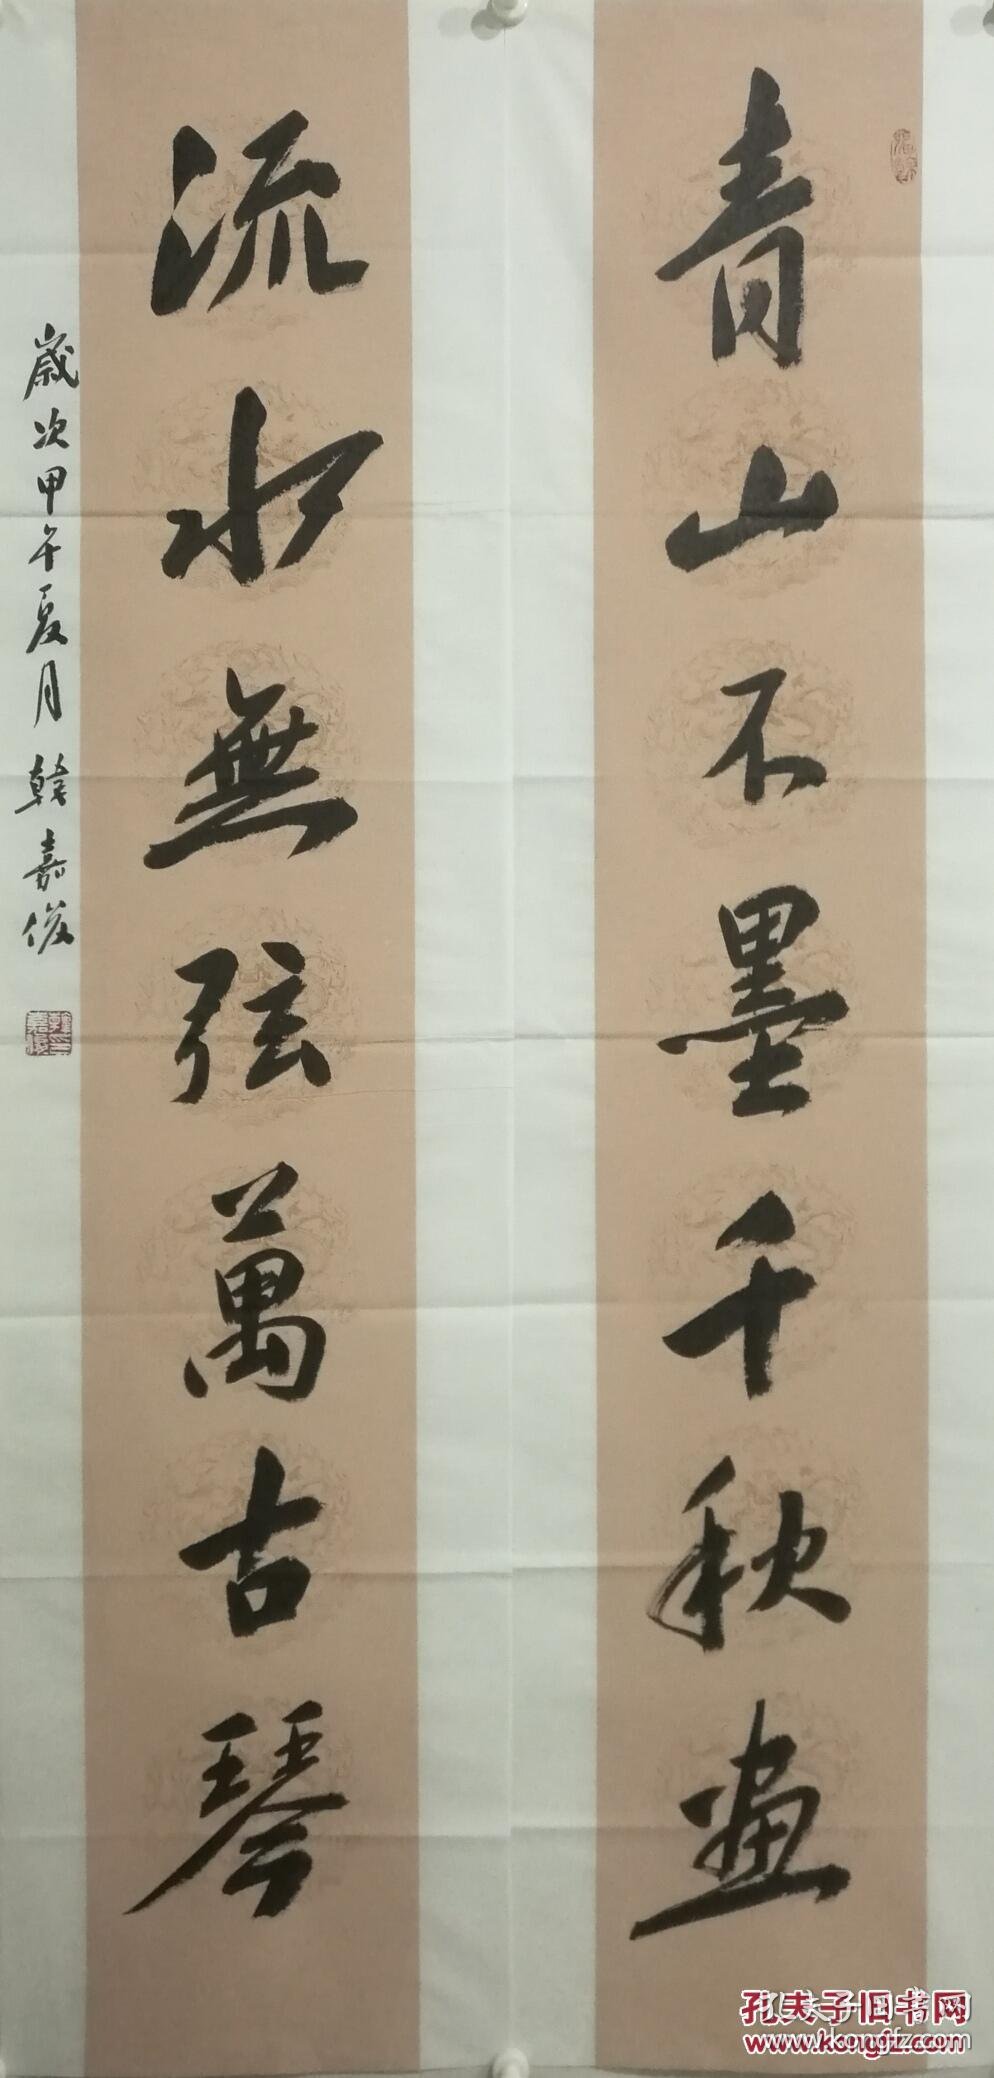 青山不墨千秋畫
流水無弦萬古琴
歲次甲午夏月韓嘉俊
孔夫子旧书网
www.kongfz.com